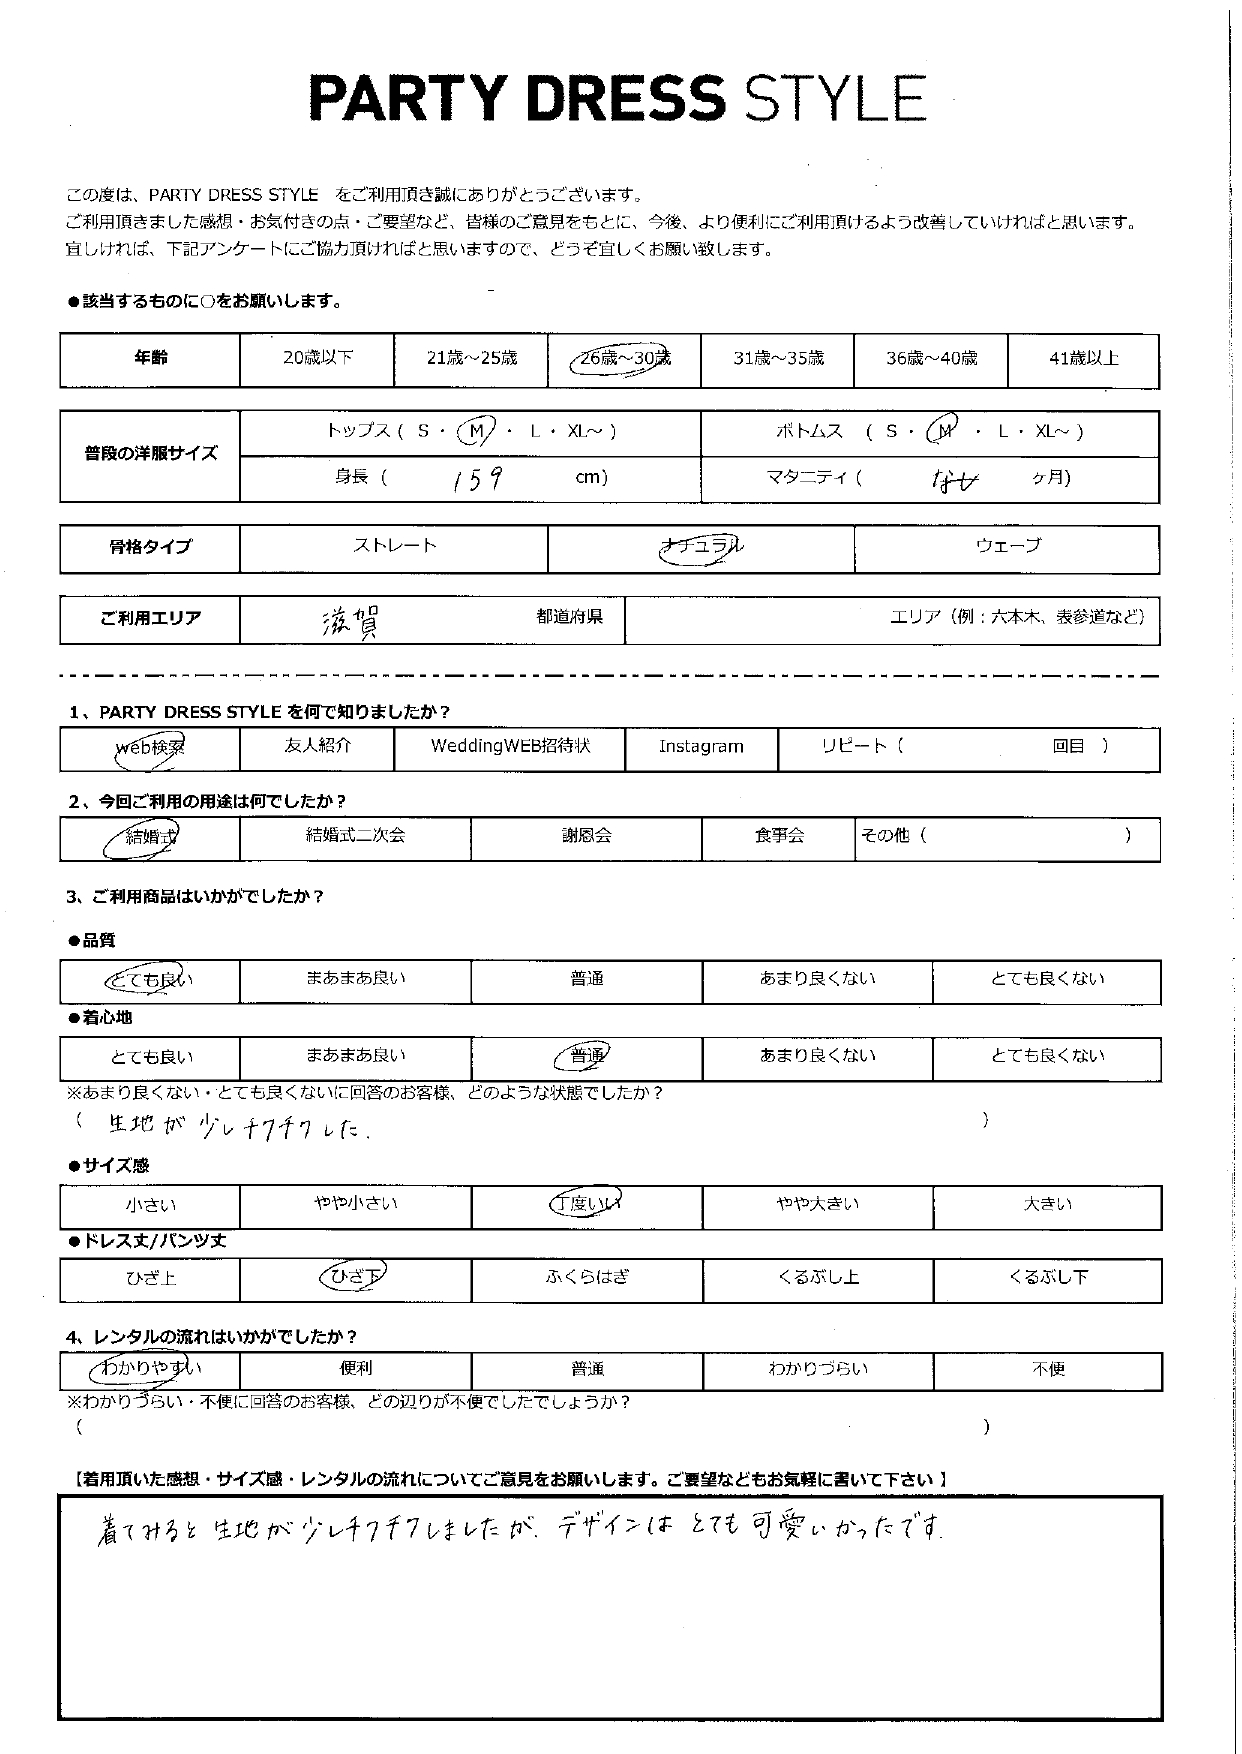 PARTY DRESS STYLE
この度は、PARTY DRESS STYLE をご利用頂き誠にありがとうございます。
ご利用頂きました感想・お気付きの点・ご要望など、皆様のご意見をもとに、今後、より便利にご利用頂けるよう改善していければと思います。
宜しければ、下記アンケートにご協力頂ければと思いますので、どうぞ宜しくお願い致します。
●該当するものに○をお願いします。
年齢 20歳以下 21歳～25歳 26歳～30歳 31歳～35歳 36歳～40歳 41歳以上
普段の洋服サイズ トップス ( S ・ M ・ L ・ XL～ ) ボトムス ( S ・ M ・ L ・ XL～ )
身長 ( 159 cm) マタニティ ( なし ヶ月)
骨格タイプ ストレート ナチュラル ウェーブ
ご利用エリア 滋賀 都道府県 エリア (例：六本木、表参道など)
1、PARTY DRESS STYLE を何で知りましたか？
web検索 友人紹介 WeddingWEB招待状 Instagram リピート ( 回目 )
2、今回ご利用の用途は何でしたか？
結婚式 結婚式二次会 謝恩会 食事会 その他 ( )
3、ご利用商品はいかがでしたか？
●品質
とても良い まあまあ良い 普通 あまり良くない とても良くない
●着心地
とても良い まあまあ良い 普通 あまり良くない とても良くない
※あまり良くない・とても良くないに回答のお客様、どのような状態でしたか？
( 生地が少しチクチクした. )
●サイズ感
小さい やや小さい 丁度いい やや大きい 大きい
●ドレス丈/パンツ丈
ひざ上 ひざ下 ふくらはぎ くるぶし上 くるぶし下
4、レンタルの流れはいかがでしたか？
わかりやすい 便利 普通 わかりづらい 不便
※わかりづらい・不便に回答のお客様、どの辺りが不便でしたでしょうか？
( )
【着用頂いた感想・サイズ感・レンタルの流れについてご意見をお願いします。ご要望などもお気軽に書いて下さい 】
着てみると生地が少しチクチクしましたが、デザインは とても 可愛いかったです.